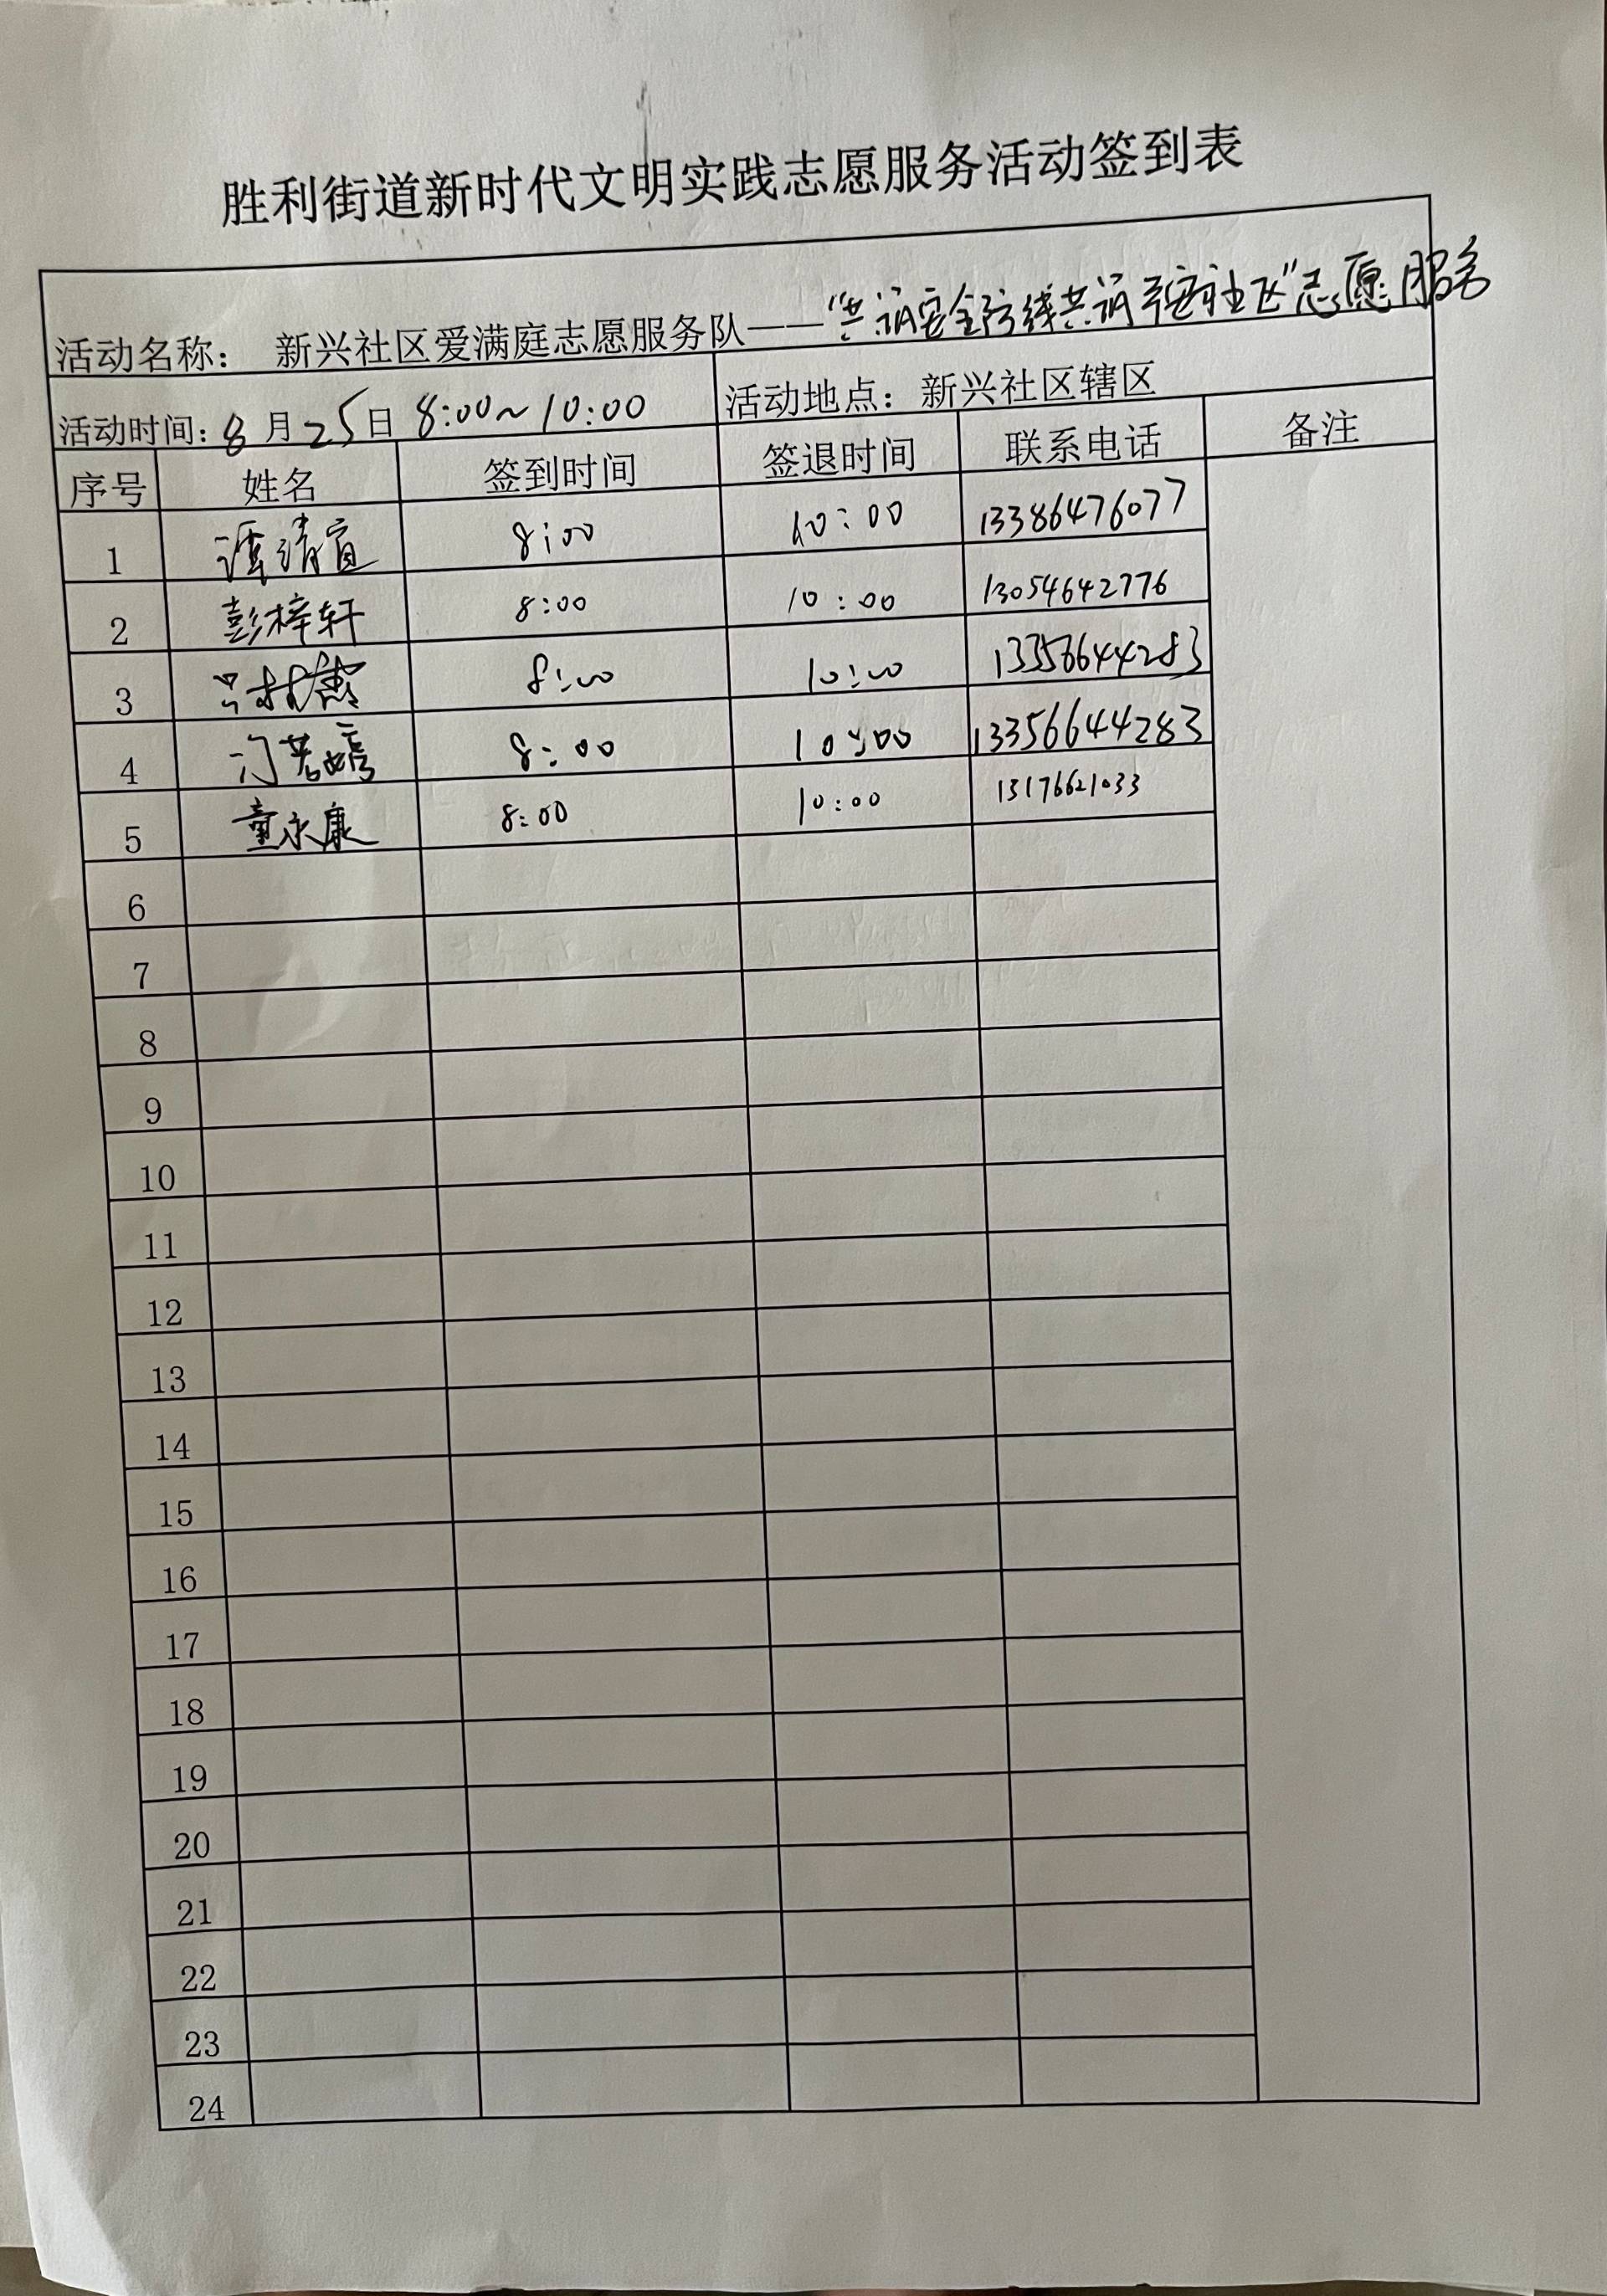 胜利街道新时代文明实践志愿服务活动签到表
活动名称： 新兴社区爱满庭志愿服务队——"共筑安全防线共筑平安社区"志愿服务
活动时间：8月25日 8:00~10:00 活动地点：新兴社区辖区
序号 姓名 签到时间 签退时间 联系电话 备注
1 清宜 8:00 10:00 13386476077
2 彭梓轩 8:00 10:00 13054642776
3 8:00 10:00 13356644283
4 8:00 10:00 13356644283
5 童永康 8:00 10:00 13176621033
6
7
8
9
10
11
12
13
14
15
16
17
18
19
20
21
22
23
24